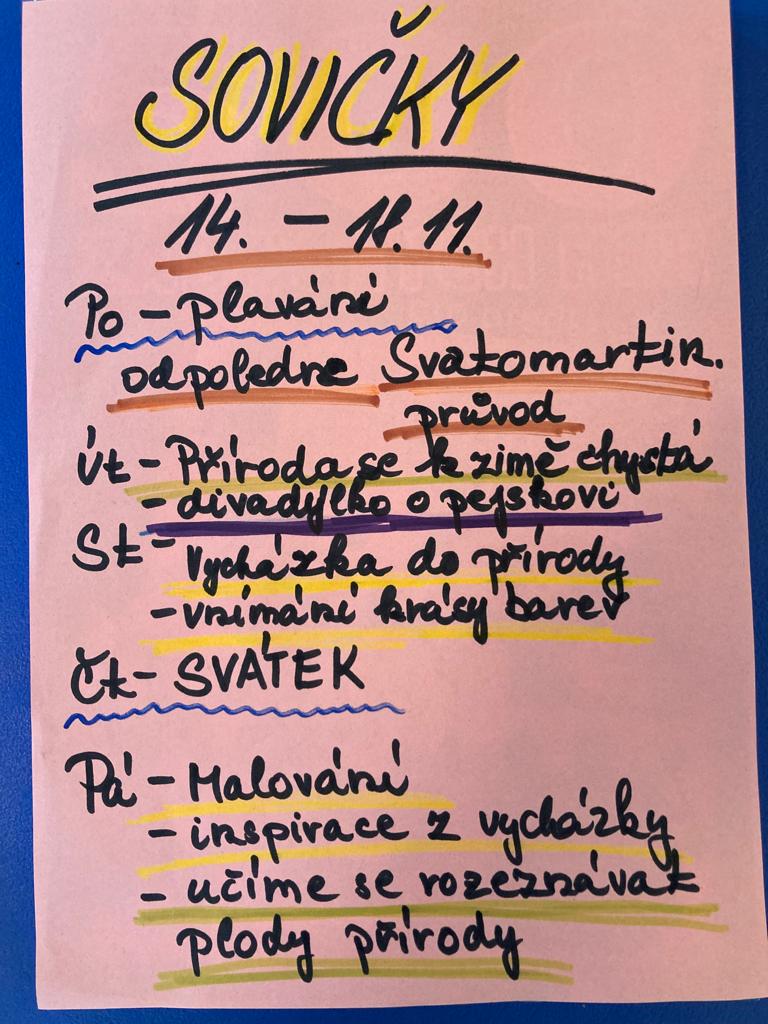 SOVIČKY
14. - 18. 11.
Po - plavání
odpoledne Svatomartin.
průvod
Út - Příroda se k zimě chystá
- divadýlko o pejskovi
St - Vycházka do přírody
- vnímání krásy barev
Čt - SVÁTEK
Pá - Malování
- inspirace z vycházky
- učíme se rozeznávat
plody přírody